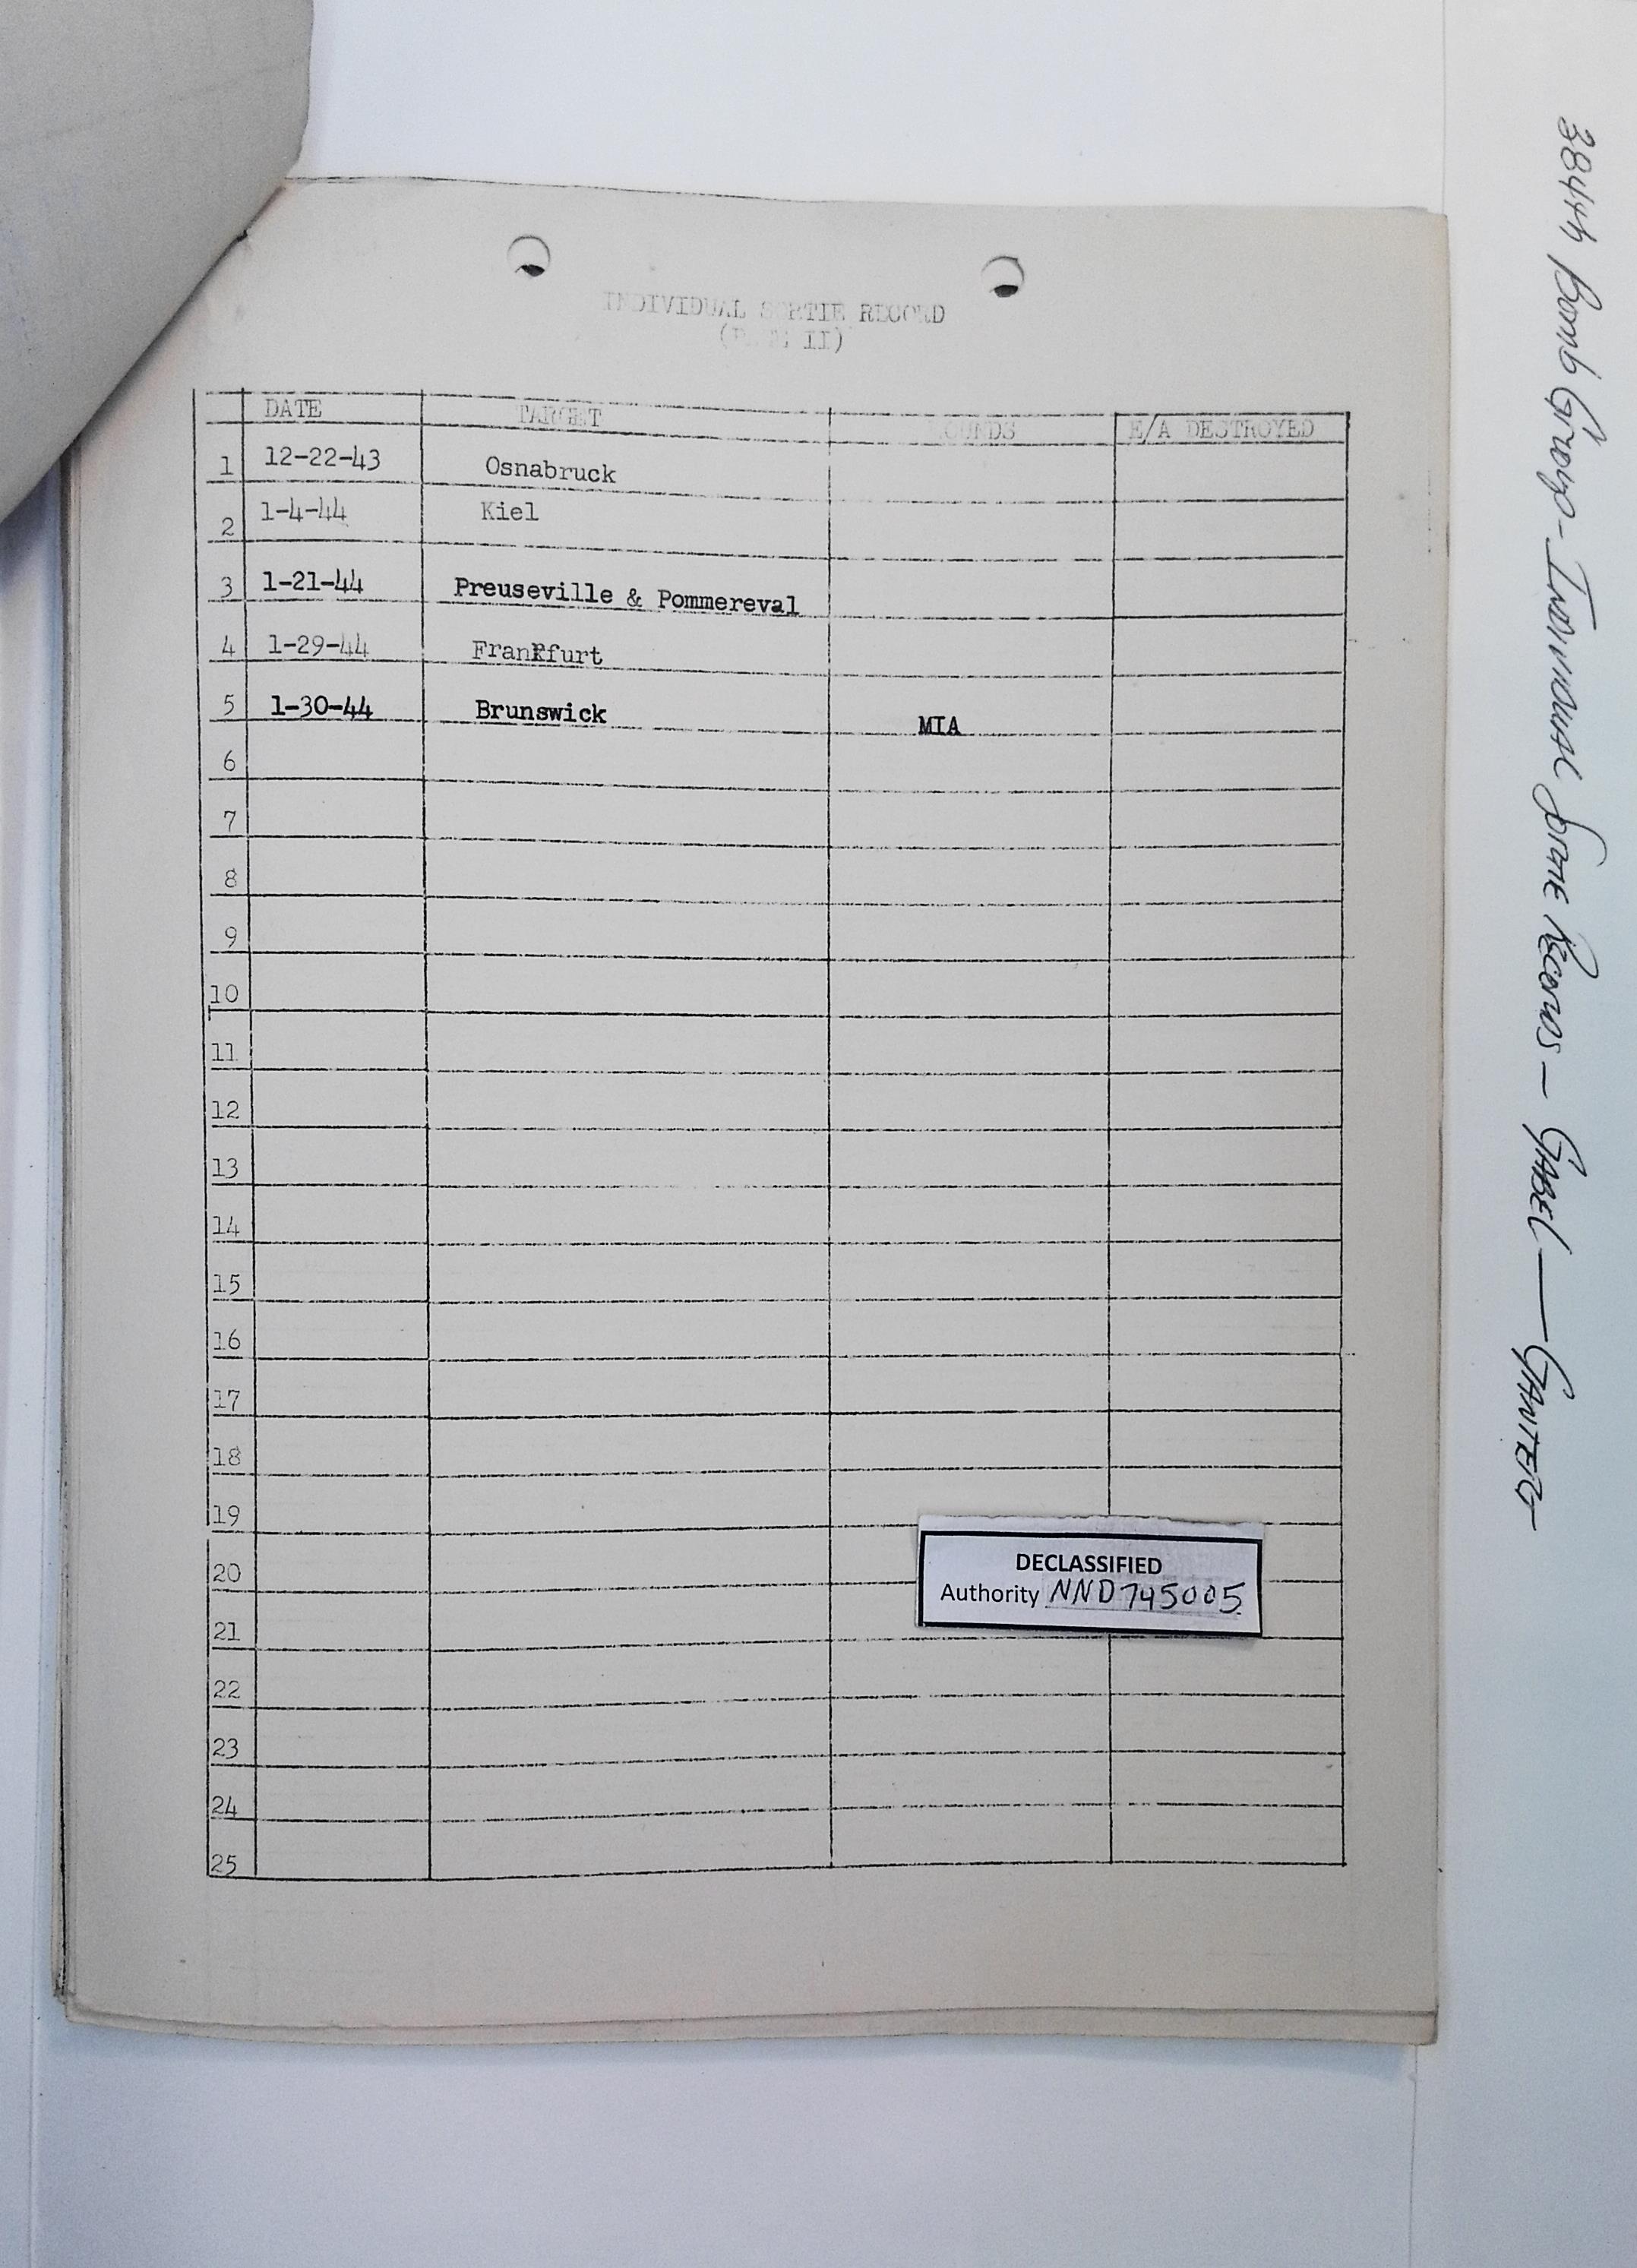 INDIVIDUAL SORTIE RECORD
(PAGE II)
DATE TARGET ROUNDS E/A DESTROYED
1 12-22-43 Osnabruck
2 1-4-44 Kiel
3 1-21-44 Preuseville & Pommereval
4 1-29-44 Frankfurt
5 1-30-44 Brunswick MIA
6
7
8
9
10
11
12
13
14
15
16
17
18
19
20
21
22
23
24
25
DECLASSIFIED
Authority NND745005
384th Bomb Group - Individual Sortie Records - GABEL - GANTER